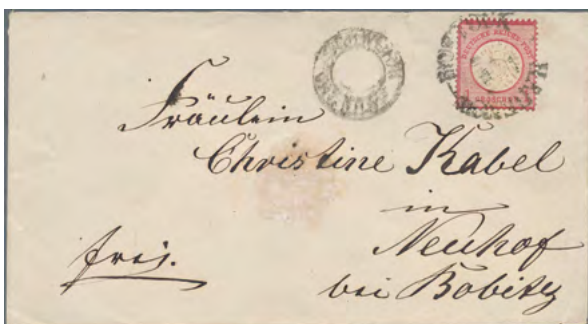 DEUTSCHE REICHS-POST
GROSCHEN
Fräulein
Christine Kabel
in
Neuhof
bei Bobitz
frei.